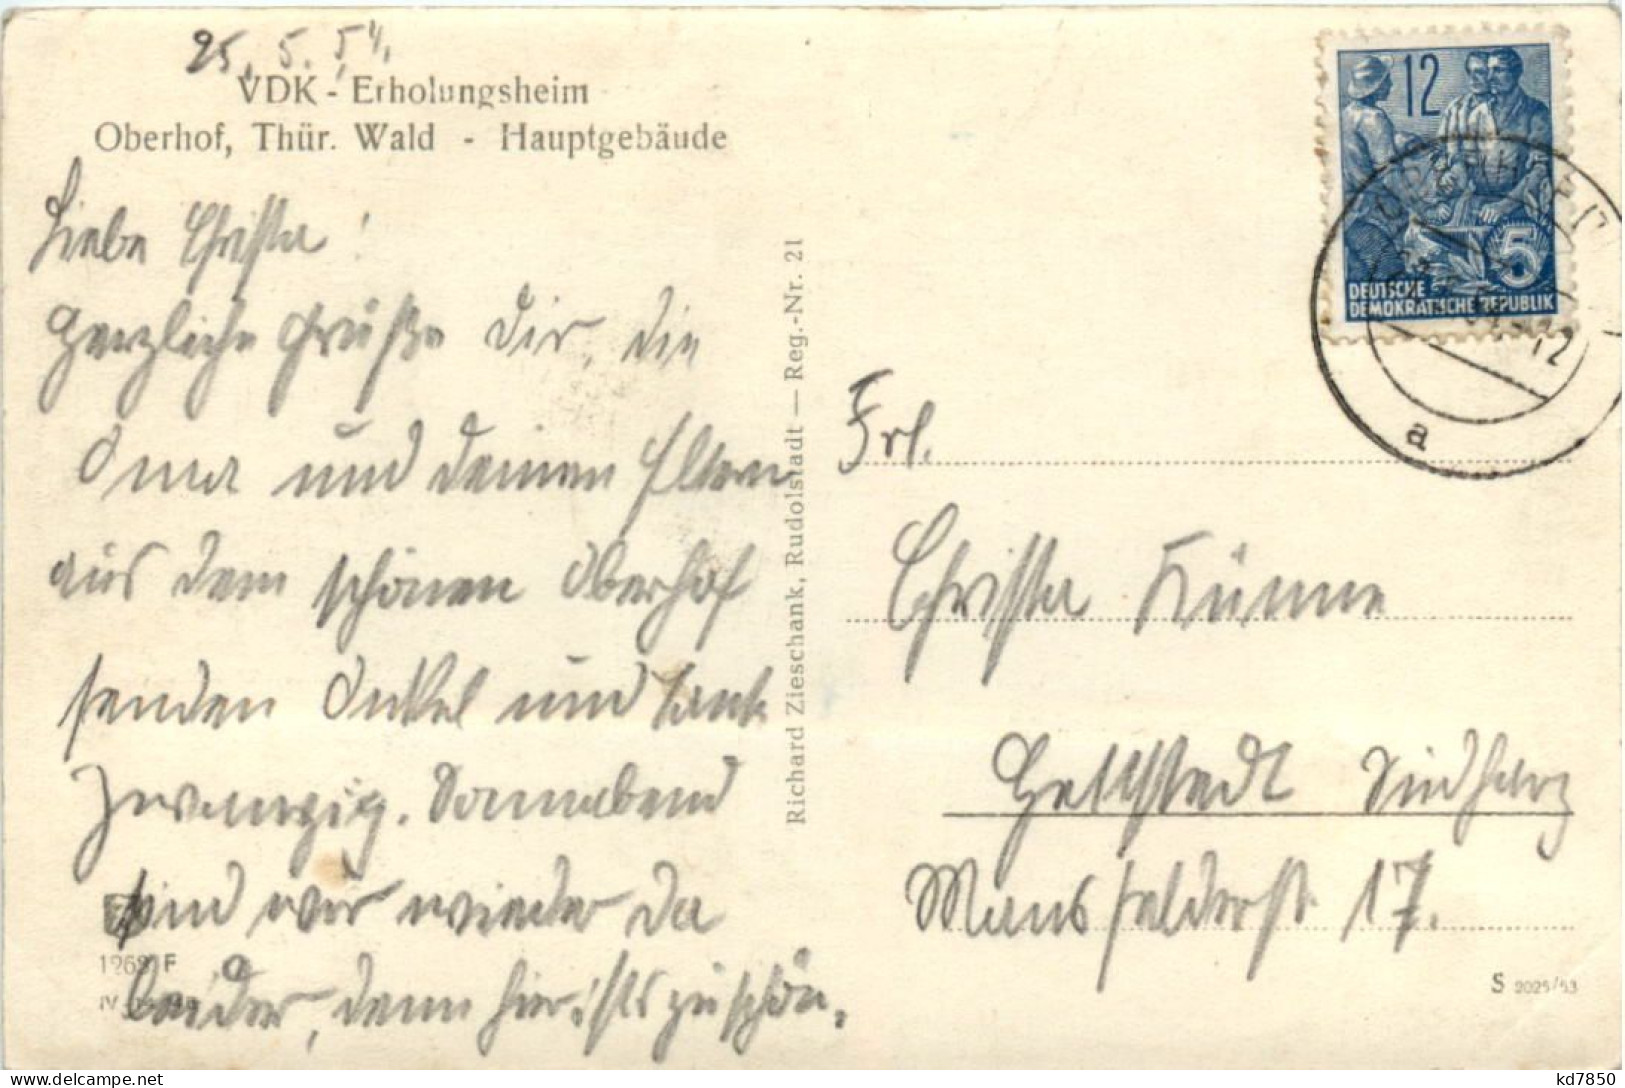 25. 5. 54.
VDK - Erholungsheim
Oberhof, Thür. Wald - Hauptgebäude
Liebe Christa!
Herzliche Grüße Dir, die
Oma und deinen Eltern
aus dem schönen Oberhof
senden Onkel und Tante
Zwanzig. Sonnabend
sind wir wieder da
leider, denn hier ists zu schön.
1268 F
IV
Richard Zieschank, Rudolstadt — Reg.-Nr. 21
12
5
DEUTSCHE
DEMOKRATISCHE REPUBLIK
12
a
Frl.
Christa Kümme
Hettstedt Südharz
Mansfelderstr. 17.
S 2025/53
kd7850